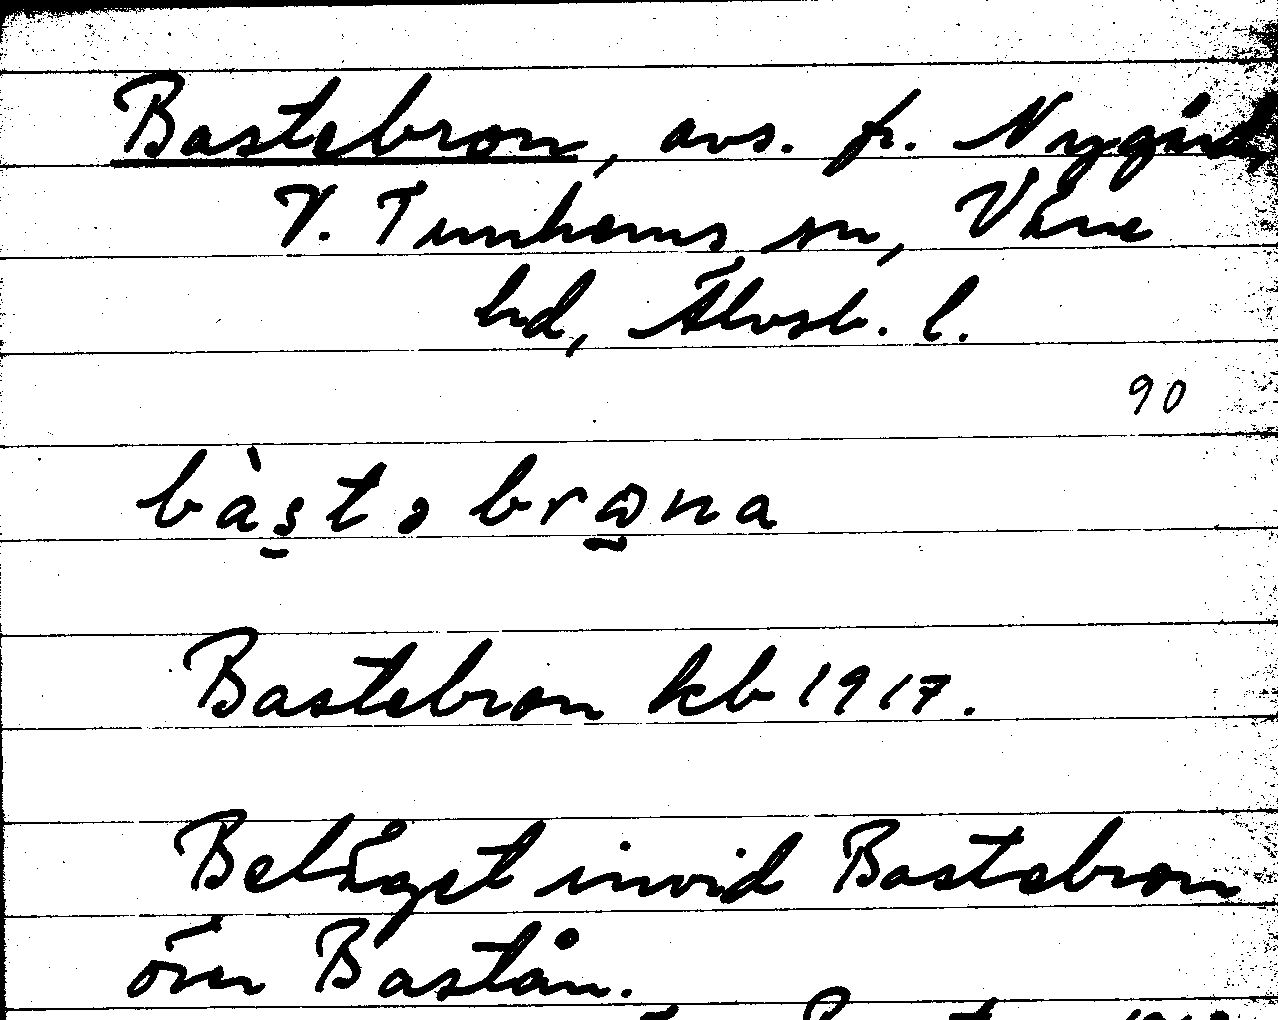 Bastebron, avs. fr. Nygård,
V. Tunhems sn, Väne
hd, Älvsb. l.
90
bàstə brωna
Bastebron kb 1917.
Beläget invid Bastebron
över Bastån.